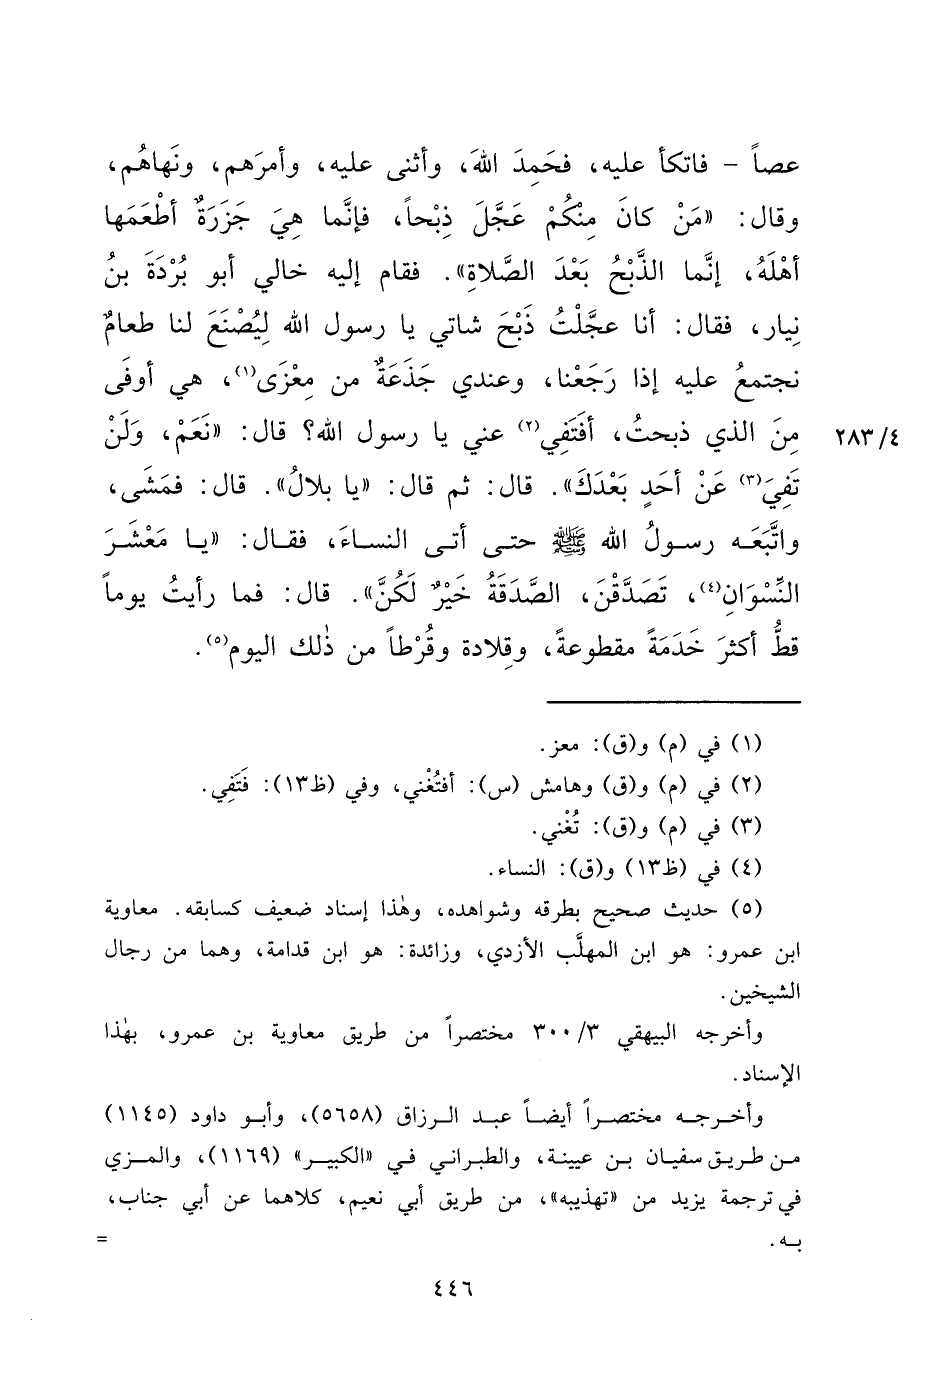 عصاً – فاتكأ عليه، فحَمِدَ اللهَ، وأثنى عليه، وأمرَهم، ونَهاهُم،
وقال: «مَنْ كانَ مِنْكُمْ عَجَّلَ ذِبْحاً، فإنَّما هِيَ جَزَرَةٌ أطْعَمَها
أهْلَهُ، إنَّما الذَّبْحُ بَعْدَ الصَّلاةِ». فقام إليه خالي أبو بُرْدَةَ بنُ
نِيار، فقال: أنا عجَّلْتُ ذَبْحَ شاتي يا رسول الله لِيُصْنَعَ لنا طعامٌ
نجتمعُ عليه إذا رَجَعْنا، وعندي جَذَعَةٌ من مِعْزَى(١)، هي أوفَى
مِنَ الذي ذبحتُ، أفتَفِي(٢) عني يا رسول الله؟ قال: «نَعَمْ، وَلَنْ ٢٨٣/٤
تَفِيَ(٣) عَنْ أحَدٍ بَعْدَكَ». قال: ثم قال: «يا بلالُ». قال: فمَشَى،
واتَّبَعَه رسولُ الله ﷺ حتى أتى النساءَ، فقال: «يا مَعْشَرَ
النِّسْوَانِ(٤)، تَصَدَّقْنَ، الصَّدَقَةُ خَيْرٌ لَكُنَّ». قال: فما رأيتُ يوماً
قطُّ أكثرَ خَدَمَةً مقطوعةً، وقِلادة وقُرْطاً من ذٰلك اليوم(٥).
(١) في (م) و(ق): معز.
(٢) في (م) و(ق) وهامش (س): أفتُغْني، وفي (ظ١٣): فَتَفِي.
(٣) في (م) و(ق): تُغْني.
(٤) في (ظ١٣) و(ق): النساء.
(٥) حديث صحيح بطرقه وشواهده، وهٰذا إسناد ضعيف كسابقه. معاوية
ابن عمرو: هو ابن المهلَّب الأزدي، وزائدة: هو ابن قدامة، وهما من رجال
الشيخين.
وأخرجه البيهقي ٣٠٠/٣ مختصراً من طريق معاوية بن عمرو، بهٰذا
الإسناد.
وأخرجه مختصراً أيضاً عبد الرزاق (٥٦٥٨)، وأبو داود (١١٤٥)
من طريق سفيان بن عيينة، والطبراني في «الكبير» (١١٦٩)، والمزي
في ترجمة يزيد من «تهذيبه»، من طريق أبي نعيم، كلاهما عن أبي جناب،
به. =
٤٤٦